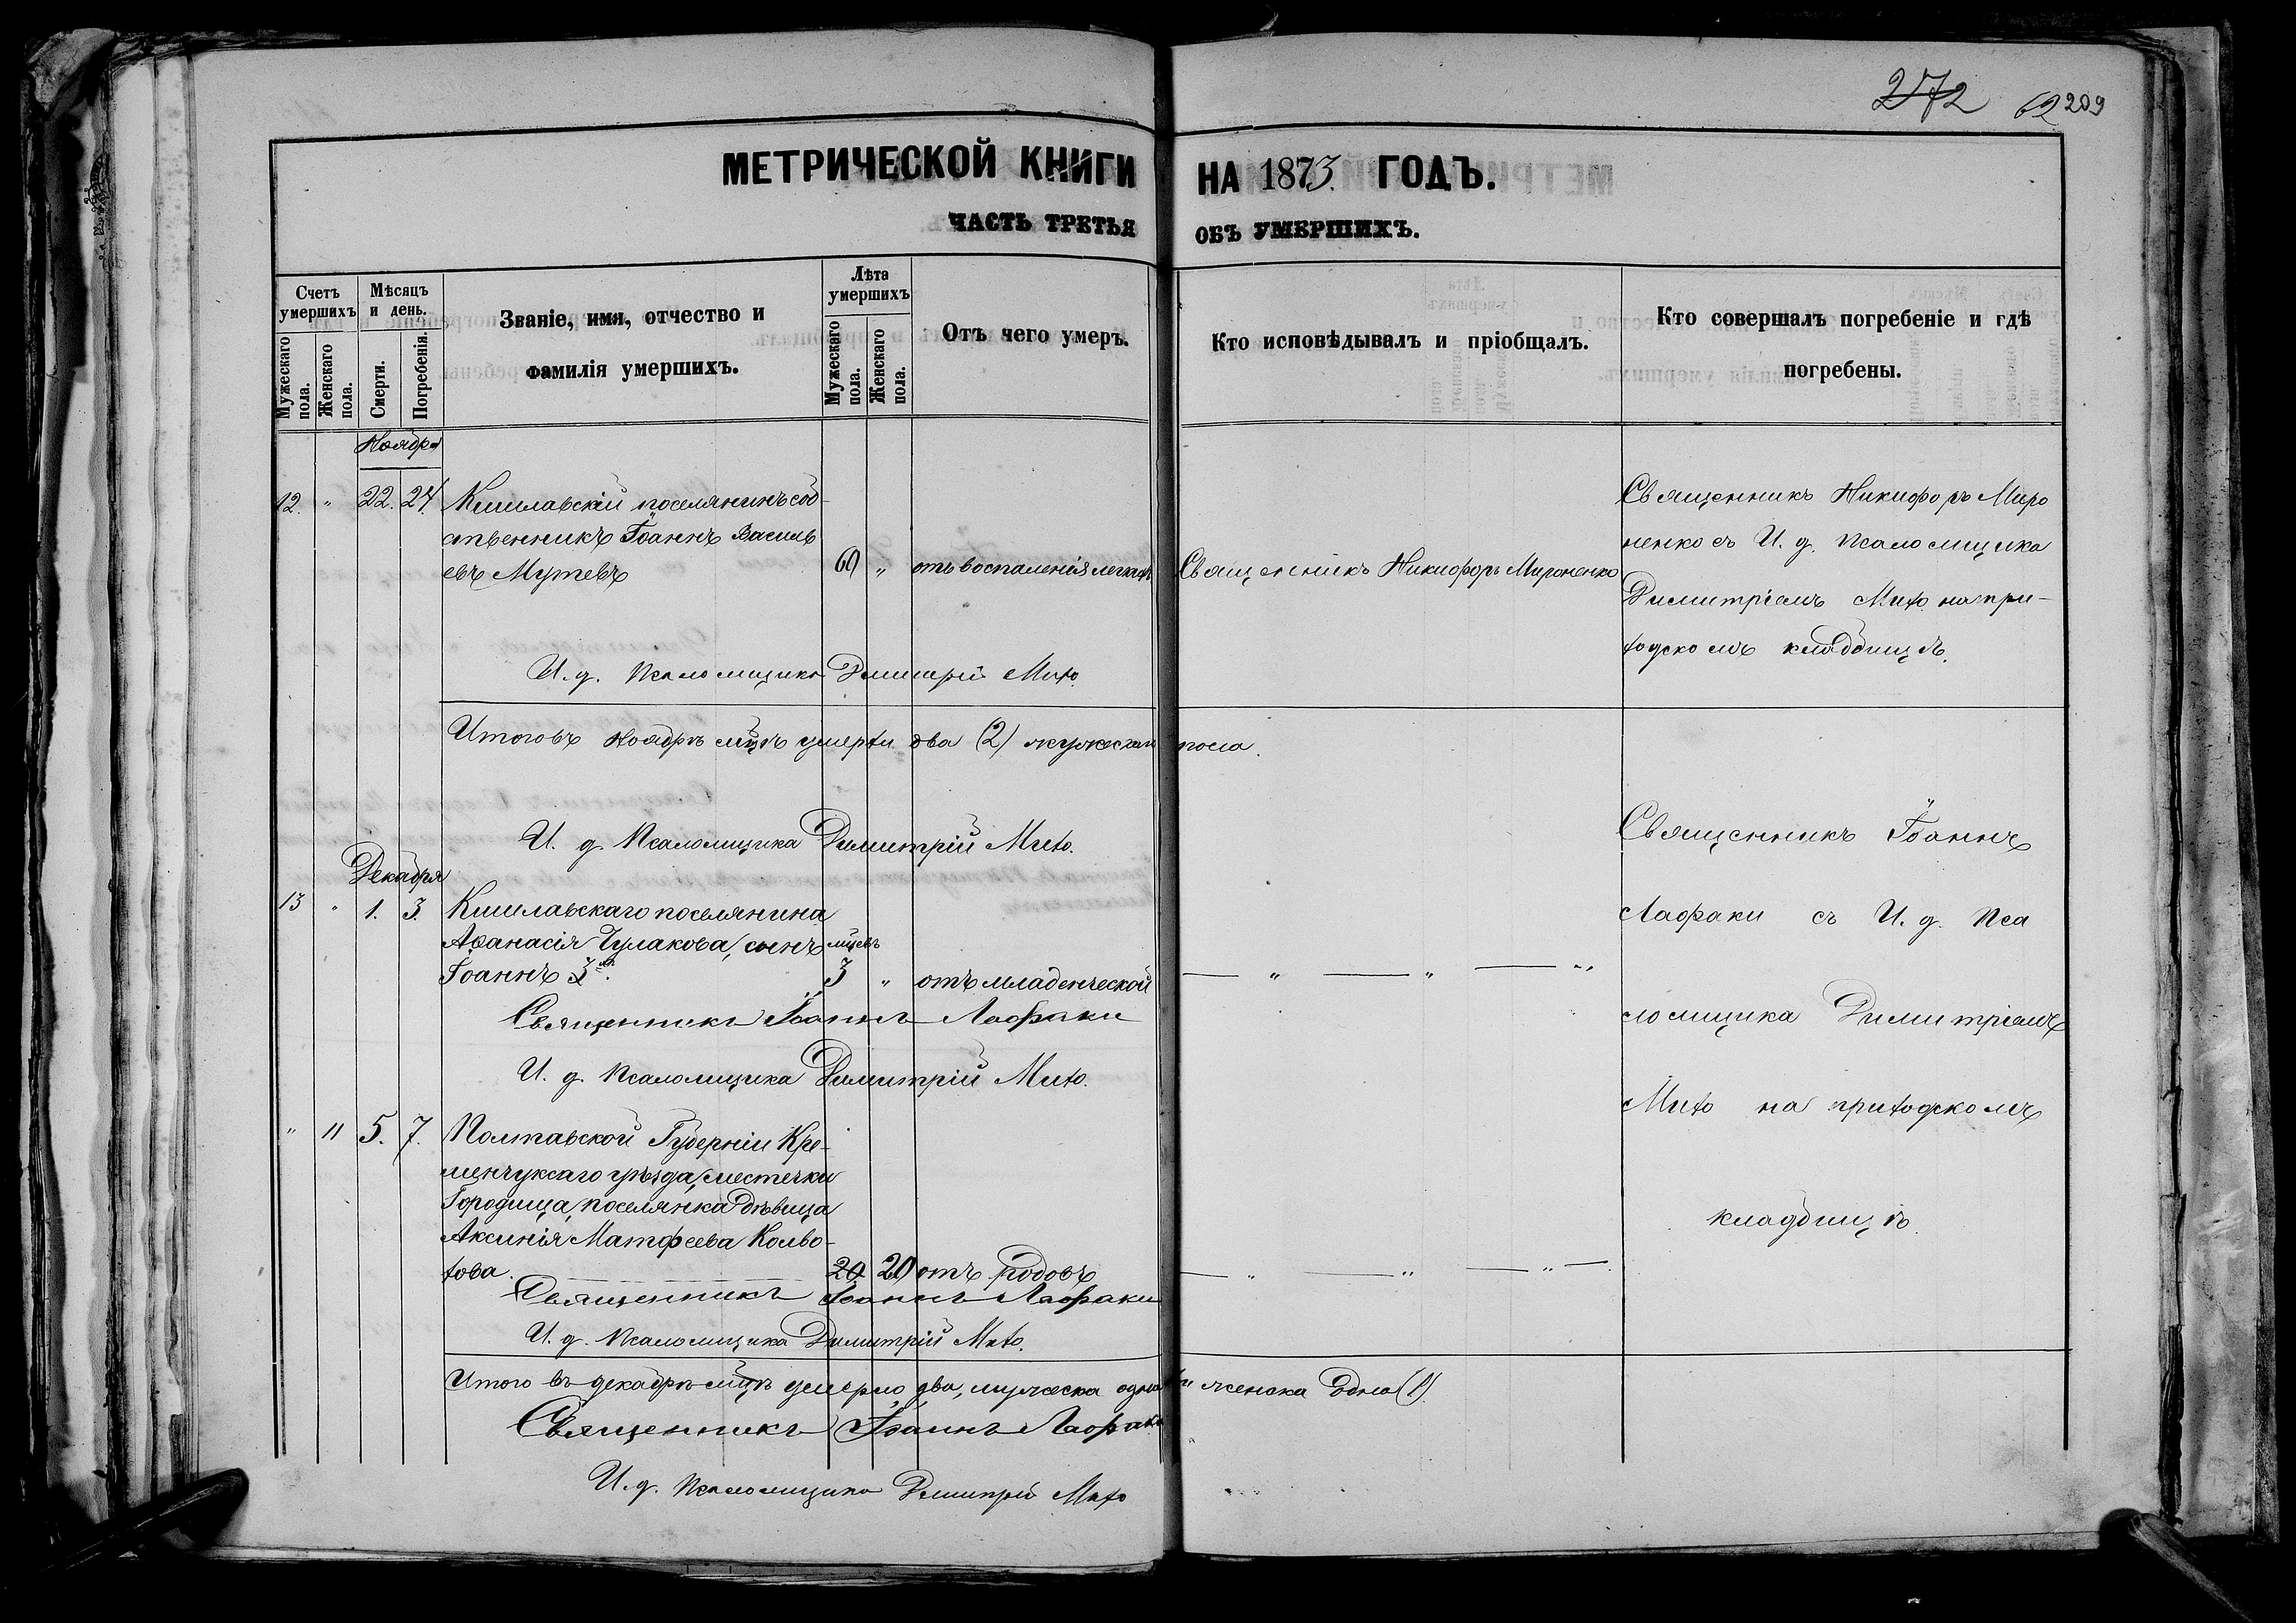 272 62 209
МЕТРИЧЕСКОЙ КНИГИ НА 1873. ГОДЪ.
ЧАСТЬ ТРЕТЬЯ ОБЪ УМЕРШИХЪ.
Счетъ умершихъ
Мужескаго пола.
Женскаго пола.
Мѣсяцъ и день.
Смерти.
Погребенія.
Званіе, имя, отчество и
фамилія умершихъ.
Лѣта умершихъ
Мужескаго пола.
Женскаго пола.
Отъ чего умеръ.
Кто исповѣдывалъ и пріобщалъ.
Кто совершалъ погребеніе и гдѣ
погребены.
Ноября
12. " 22. 24. Кишлавскій поселянинъ соб-
ственникъ Іоаннъ Василь
евъ Мутевъ 60 " отъ воспаленія легкихъ
Священникъ Никифоръ Мироненко
Священникъ Никифоръ Миро
ненко съ И. д. псаломщика
Димитріемъ Михо на при-
ходскомъ кладбищѣ.
И. д. Псаломщика Димитрій Михо.
Итого въ Ноябрѣ мцѣ умерли два (2) мужеска пола.
И. д. Псаломщика Димитрій Михо.
Декабря
13 " 1. 3. Кишлавскаго поселянина
Аѳанасія Чулакова, сынъ мцевъ
Іоаннъ 3 " отъ младенческой
— " — " — "
Священникъ Іоаннъ Лафаки
И. д. Псаломщика Димитрій Михо.
Священникъ Іоаннъ
Лафаки съ И. д. Пса
ломщика Димитріемъ
Михо на приходскомъ
кладбищѣ
" 11 5. 7. Полтавской Губерніи Кре-
менчукскаго уѣзда, местечки
Городища, поселянка дѣвица
Аксинія Матфеева Кольво-
това. 20 20 отъ родовъ
— " — " — " —
Священникъ Іоаннъ Лафаки
И. д. Псаломщика Димитрій Михо.
Итого въ декабрѣ мцѣ умерло два, мужеска одна и женска одна (1).
Священникъ Іоаннъ Лафаки
И. д. Псаломщика Димитрій Михо